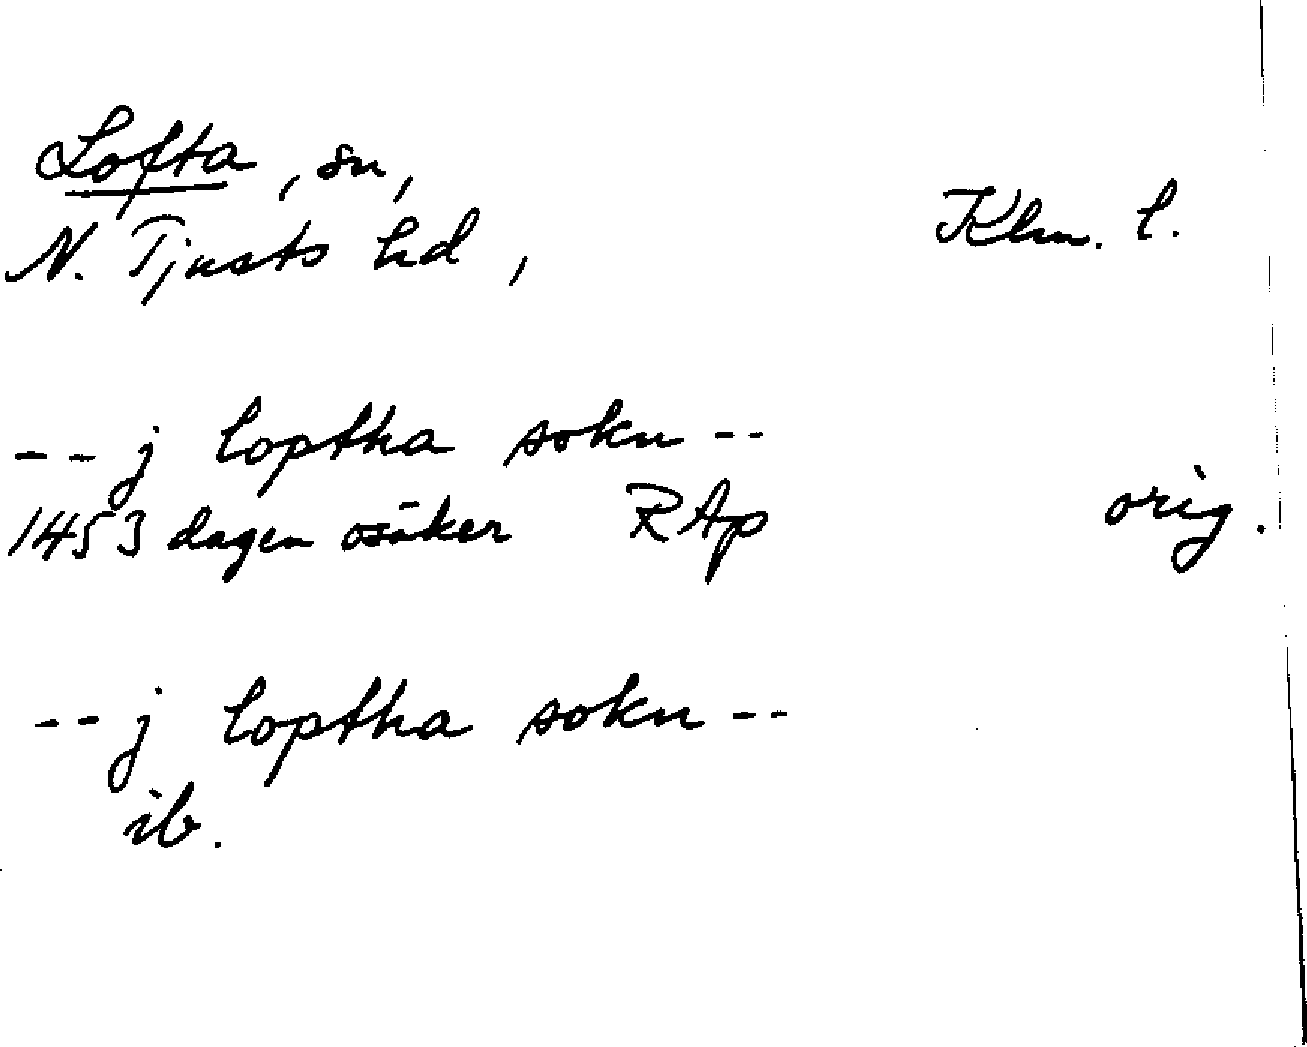 Lofta, sn,
N. Tjusts hd, Klm. l.
-- j loptha sokn --
1453 dagen osäker RAp orig.
-- j loptha sokn --
ib.